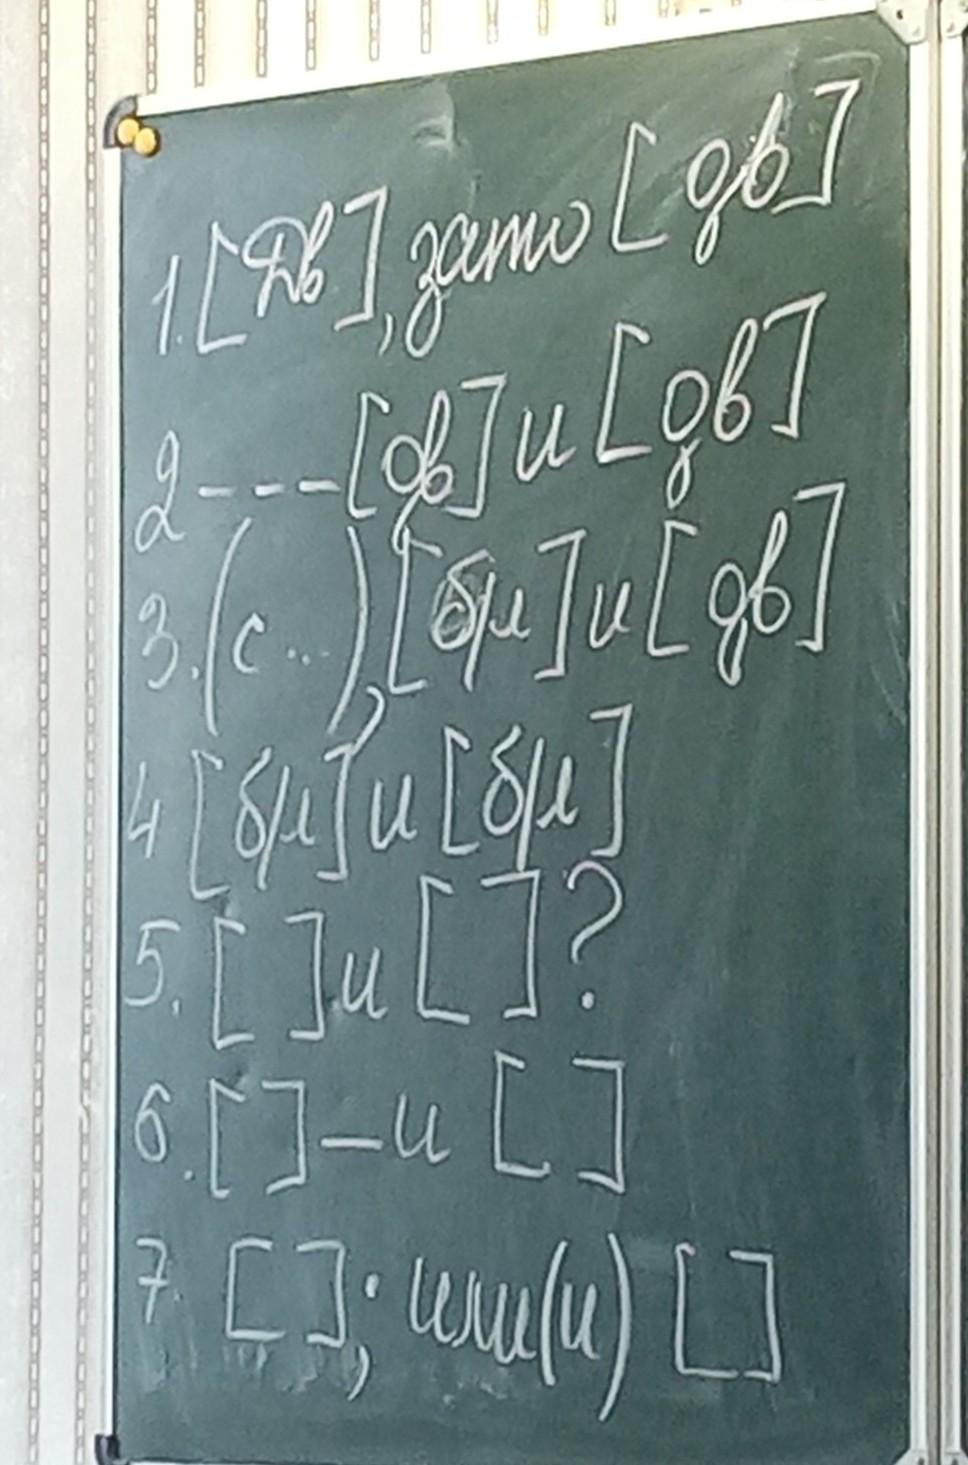 1. [Дв], зато [дв]
2 --- [дв] и [дв]
3. (с...), [б/л] и [дв]
4 [б/л] и [б/л]
5. [ ] и [ ]?
6. [ ] – и [ ]
7. [ ]; или (и) [ ]